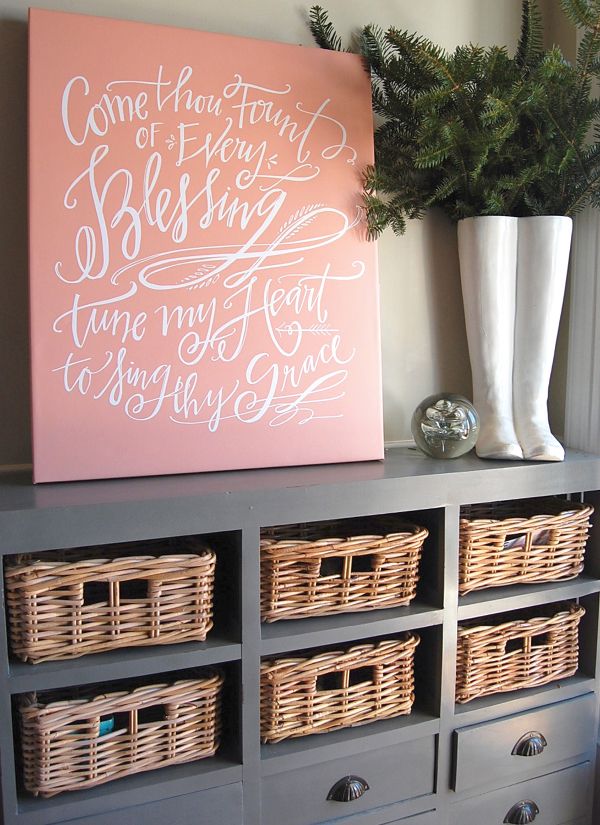 Come thou Fount
OF Every
Blessing
tune my Heart
to sing thy Grace